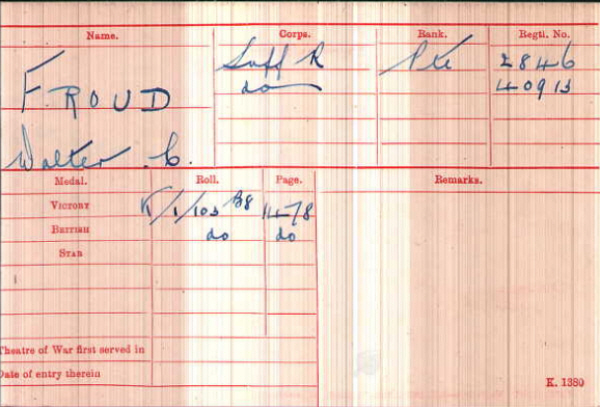 Name. Corps. Rank. Regtl. No.
FROUD Suff R Pte 2846
do 40913
Walter C.
Medal. Roll. Page. Remarks.
VICTORY K/1/103 B8 1478
BRITISH do do
STAR
Theatre of War first served in
Date of entry therein
K. 1380